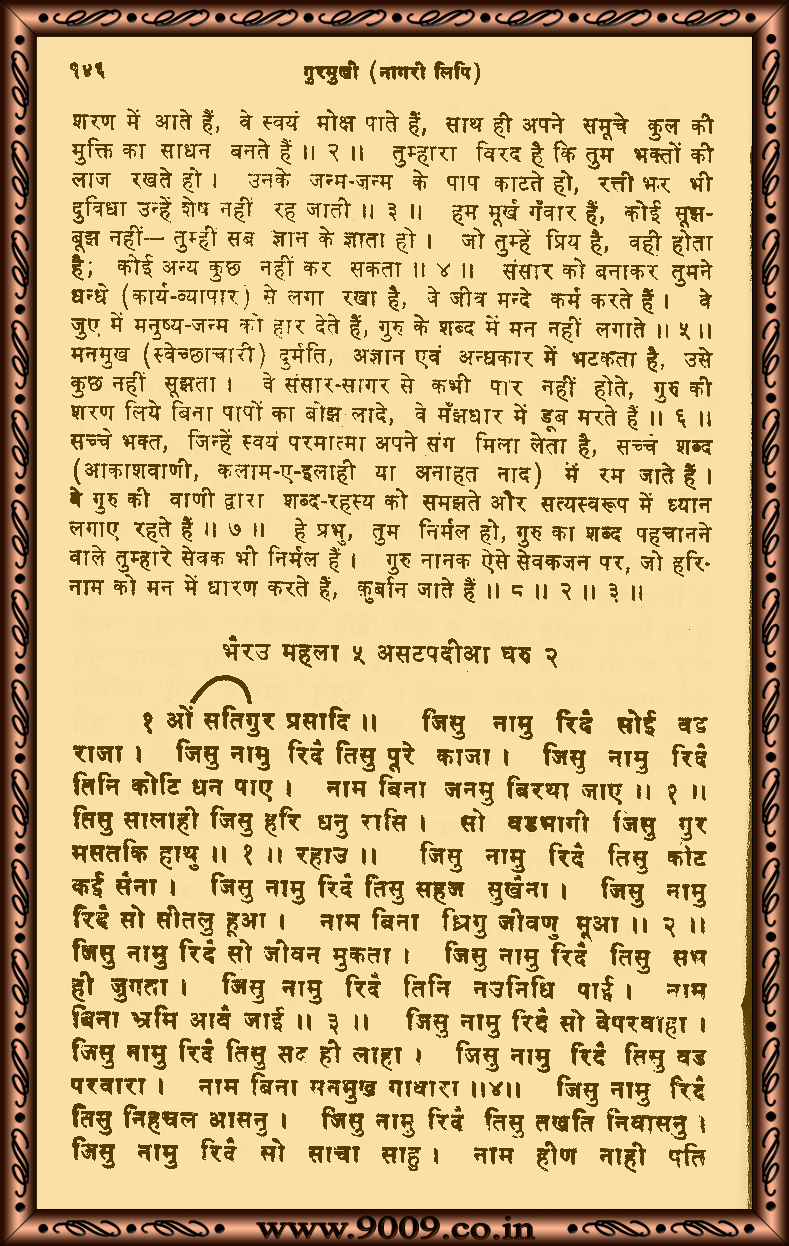 १४६ गुरमुखी (नागरी लिपि)
शरण में आते हैं, वे स्वयं मोक्ष पाते हैं, साथ ही अपने समूचे कुल की
मुक्ति का साधन बनते हैं ॥ २ ॥ तुम्हारा विरद है कि तुम भक्तों की
लाज रखते हो । उनके जन्म-जन्म के पाप काटते हो, रत्ती भर भी
दुविधा उन्हें शेष नहीं रह जाती ॥ ३ ॥ हम मूर्ख गँवार हैं, कोई सूझ-
बूझ नहीं— तुम्हीं सब ज्ञान के ज्ञाता हो । जो तुम्हें प्रिय है, वही होता
है; कोई अन्य कुछ नहीं कर सकता ॥ ४ ॥ संसार को बनाकर तुमने
धन्धे (कार्य-व्यापार) से लगा रखा है, वे जीव मन्दे कर्म करते हैं । वे
जुए में मनुष्य-जन्म को हार देते हैं, गुरु के शब्द में मन नहीं लगाते ॥ ५ ॥
मनमुख (स्वेच्छाचारी) दुर्मति, अज्ञान एवं अन्धकार में भटकता है, उसे
कुछ नहीं सूझता । वे संसार-सागर से कभी पार नहीं होते, गुरु की
शरण लिये बिना पापों का बोझ लादे, वे मँझधार में डूब मरते हैं ॥ ६ ॥
सच्चे भक्त, जिन्हें स्वयं परमात्मा अपने संग मिला लेता है, सच्चे शब्द
(आकाशवाणी, कलाम-ए-इलाही या अनाहत नाद) में रम जाते हैं ।
वे गुरु की वाणी द्वारा शब्द-रहस्य को समझते और सत्यस्वरूप में ध्यान
लगाए रहते हैं ॥ ७ ॥ हे प्रभु, तुम निर्मल हो, गुरु का शब्द पहचानने
वाले तुम्हारे सेवक भी निर्मल हैं । गुरु नानक ऐसे सेवकजन पर, जो हरि-
नाम को मन में धारण करते हैं, कुर्बान जाते हैं ॥ ८ ॥ २ ॥ ३ ॥
भैरउ महला ५ असटपदीआ घरु २
१ ओं सतिगुर प्रसादि ॥ जिसु नामु रिदै सोई वड
राजा । जिसु नामु रिदै तिसु पूरे काजा । जिसु नामु रिदै
तिनि कोटि धन पाए । नाम बिना जनमु बिरथा जाए ॥ १ ॥
तिसु सालाही जिसु हरि धनु रासि । सो वडभागी जिसु गुर
मसतकि हाथु ॥ १ ॥ रहाउ ॥ जिसु नामु रिदै तिसु कोट
कई सैना । जिसु नामु रिदै तिसु सहज सुखैना । जिसु नामु
रिदै सो सीतलु हूआ । नाम बिना ध्रिगु जीवणु मूआ ॥ २ ॥
जिसु नामु रिदै सो जीवन मुकता । जिसु नामु रिदै तिसु सभ
ही जुगता । जिसु नामु रिदै तिनि नउनिधि पाई । नाम
बिना भ्रमि आवै जाई ॥ ३ ॥ जिसु नामु रिदै सो वेपरवाहा ।
जिसु नामु रिदै तिसु सद ही लाहा । जिसु नामु रिदै तिसु वड
परवारा । नाम बिना मनमुख गावारा ॥४॥ जिसु नामु रिदै
तिसु निहचल आसनु । जिसु नामु रिदै तिसु तखति निवासनु ।
जिसु नामु रिदै सो साचा साहु । नाम हीण नाही पति
www.9009.co.in